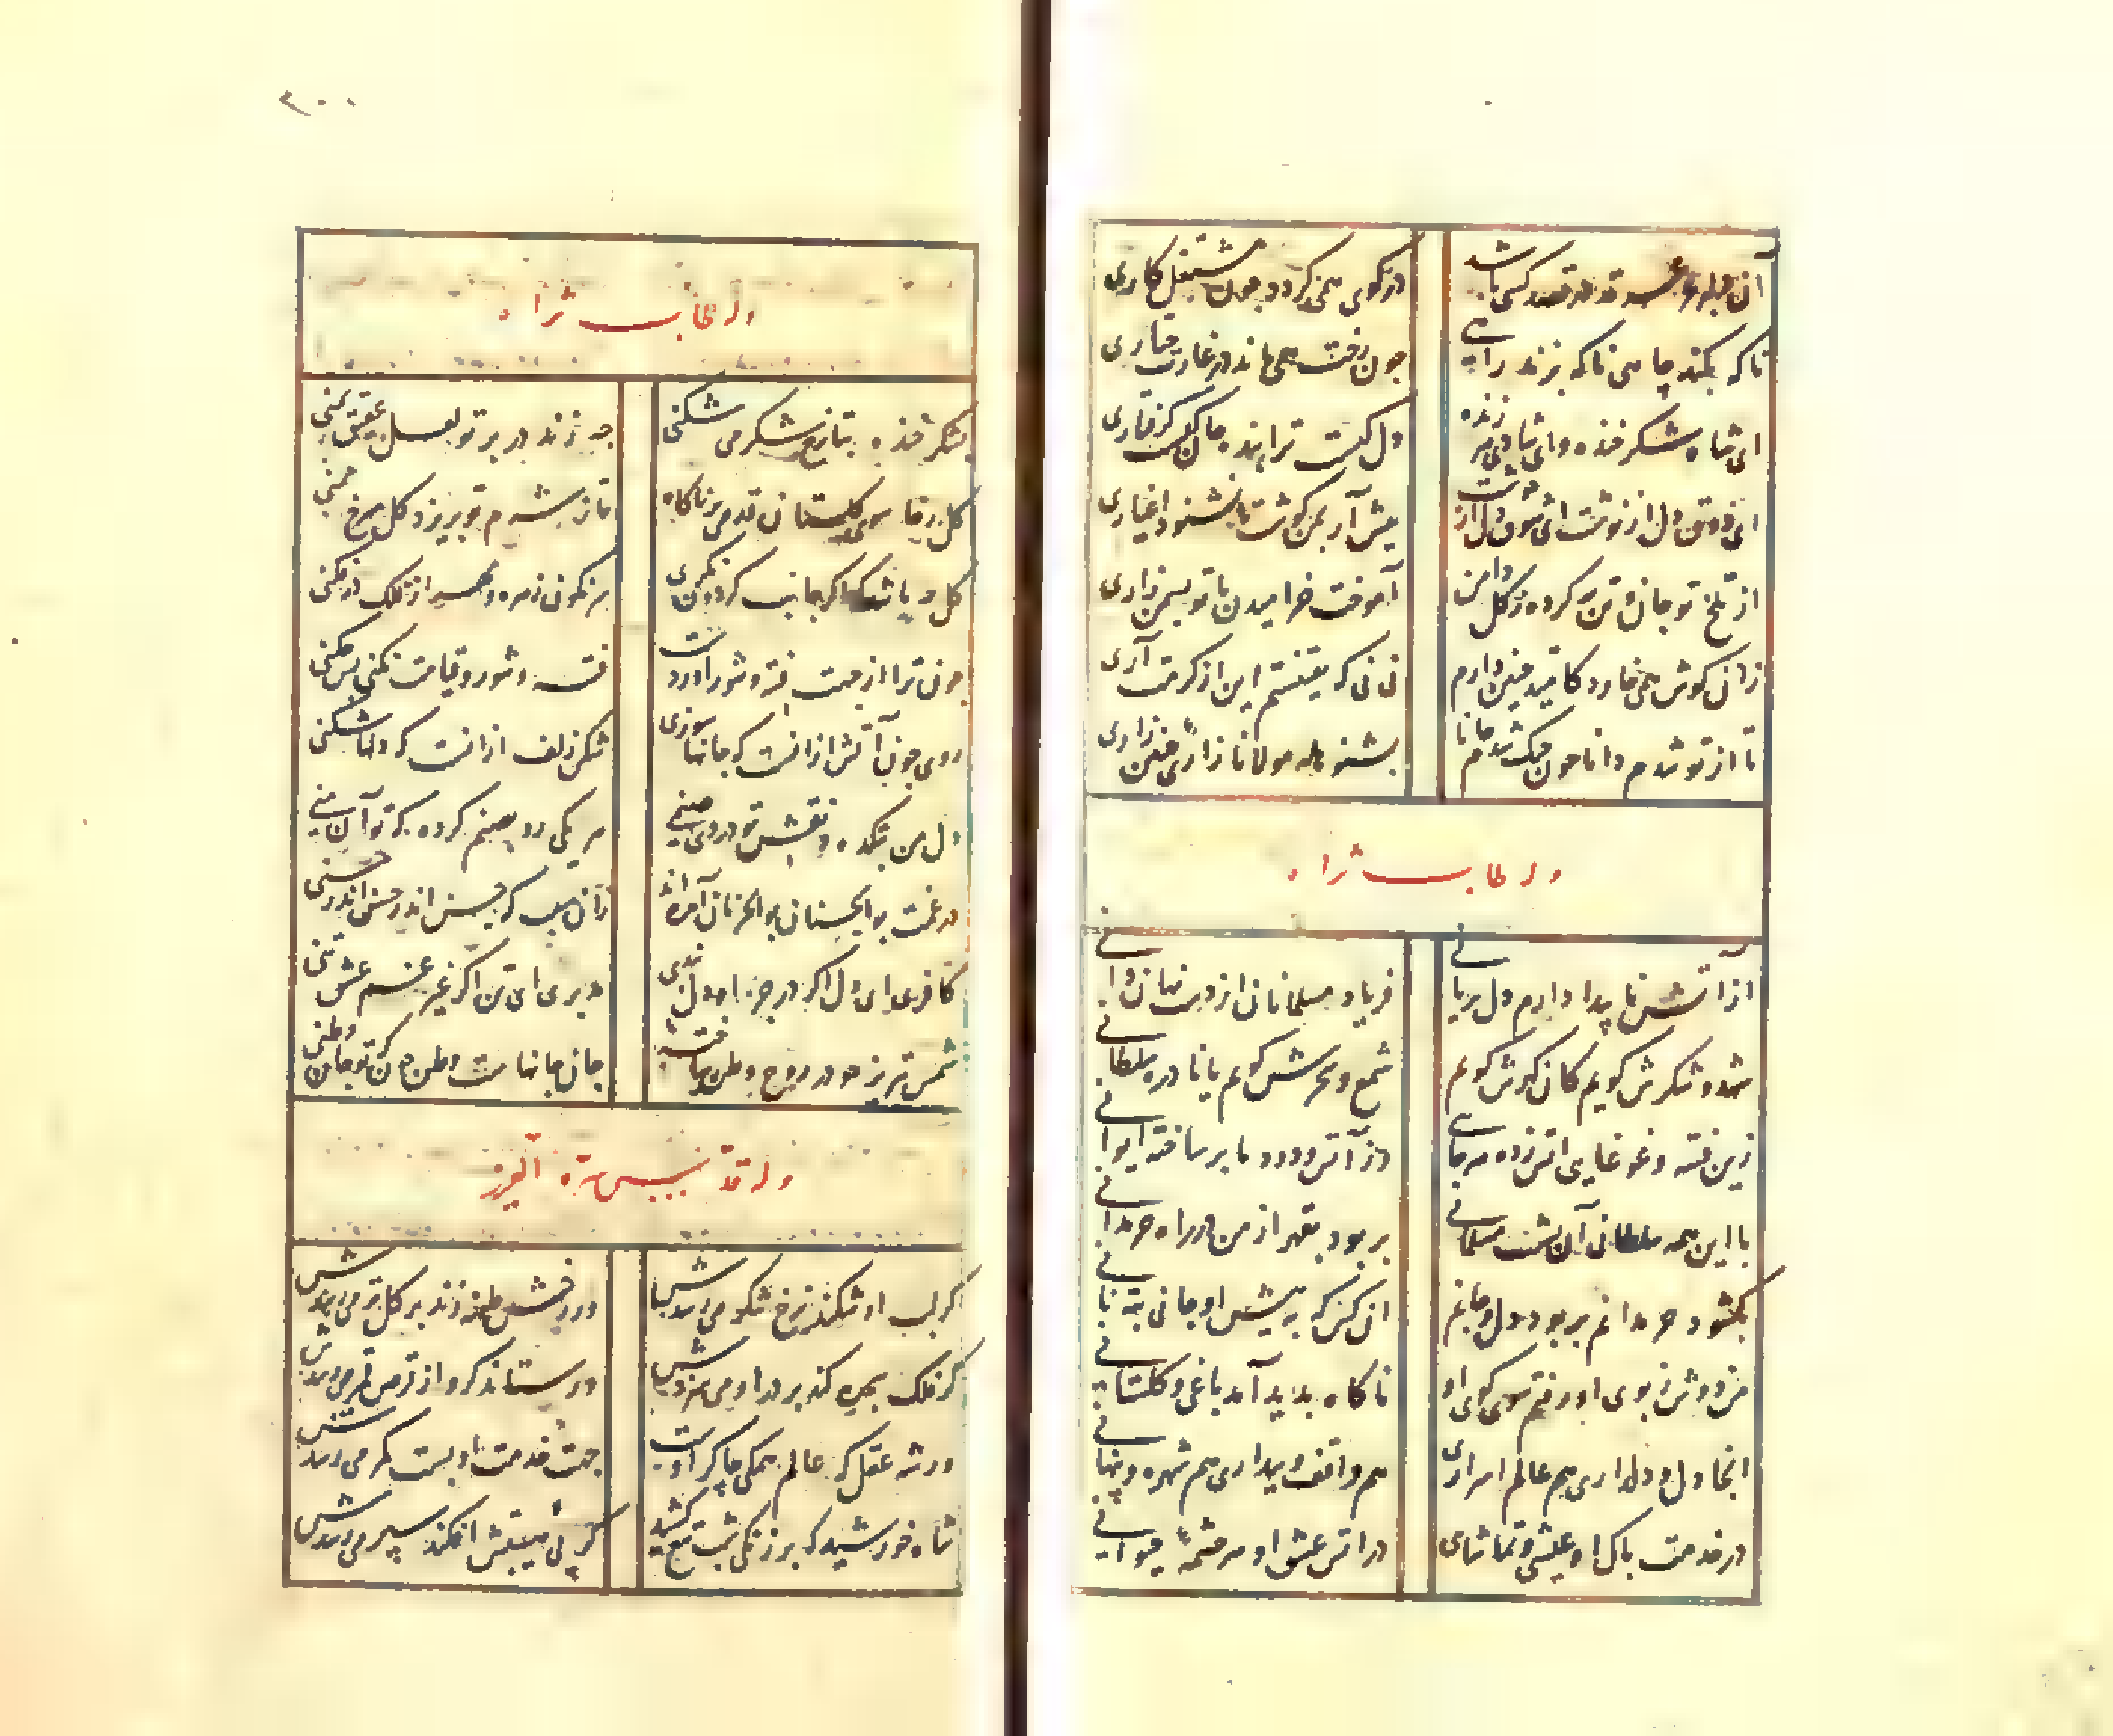 در کوی همی گردد چون مشتغل کاری
تا که بکند چاهی ناکه بزند رایی
چون رخت همی ماند در غارت
ای شاه شکر خنده وای شادی هر زنده
دل کیست ترا بنده جان کیست گرفتاری
ای ذوق دل از نوشت ای شوق دل از
پیش آر بمن گوشت تا نشنود اغیاری
از تلخ تو جان و تن پر کرده ز گل دامن
آموخت خرامیدن با تو بسمن زاری
زان گوش همی خارد کامید چنین دارم
نی نی که یقینستم این از کرمت آری
تا از تو شدم دانا چون چنک شدم جانا
بشنو هله مولانا زاری چنین زاری
وله طاب ثراه
از آتش ناپیدا دارم دل بریانی
فریاد مسلمانان از دست
شهد و شکرش گویم کان گهرش گویم
شمع و سحرش گویم یا نادره سلطانی
زین فتنه و غوغایی اتش زده هر جایی
وز آتش و دود ما برساخته ایوانی
با این همه سلطانی آن
بربود بقهر از من در راه حرمدانی
بکشود حرمدانم بربود دل و جانم
ان کس که به پیش او جانی به نانی
من دوش ز بوی او رفتم سوی کوی او
ناکاه بدید آمد باغی و کلستانی
انجا دل و دلداری هم عالم اسراری
هم واقف و بیداری هم شهره و پنهانی
در خدمت خاک او عیشی و تماشای
در اتش عشق او هر چشمه حیوانی
٣٠٠
وله طاب ثراه
بشکر خنده بتا نرخ شکر می شکنی
چه زند در بر تو لعل عقیق یمنی
کل رخا سوی کلستان قدمی ناکاه
تا ز شرم تو بریزد کل سرخ چمنی
کل
سرنگون زهره و مه را ز فلک در فکنی
چون ترا از جهت فتنه و شور اوردست
فتنه و شور و قیامت نکنی پس چکنی
روی چون آتش از انست که جانها سوزی
شکن زلف از انست که دلها شکنی
دل من بتکده و نقش تو در وی صنمی
هر یکی رو بصنم کرده که تو آن منی
در غمت بو الحسنان بو الحزنان آمده اند
زان سبب که حسن اندر حسن اندر حسنی
کافری ای دل اگر در جز او دل بندی
مدبری ای تن اگر غیر غم عشق تنی
شمس تبریز چو در روح وطن ساخت
جان جانها ست وطن چون که تو جان وطنی
وله قدس سره العزیز
گر لب او شکند نرخ شکر می رسدش
ور رخش طعنه زند بر کل تر می رسدش
گر فلک سجده کند بر در او می سزدش
ور ستاند گرو از قرص قمر می رسدش
ور شه عقل که عالم همگی چاکر اوست
جهت خدمت او بست کمر می رسدش
شاه خورشید که بر زنگی شب تیغ کشید
گر پی هیبتش افکند سپر می رسدش